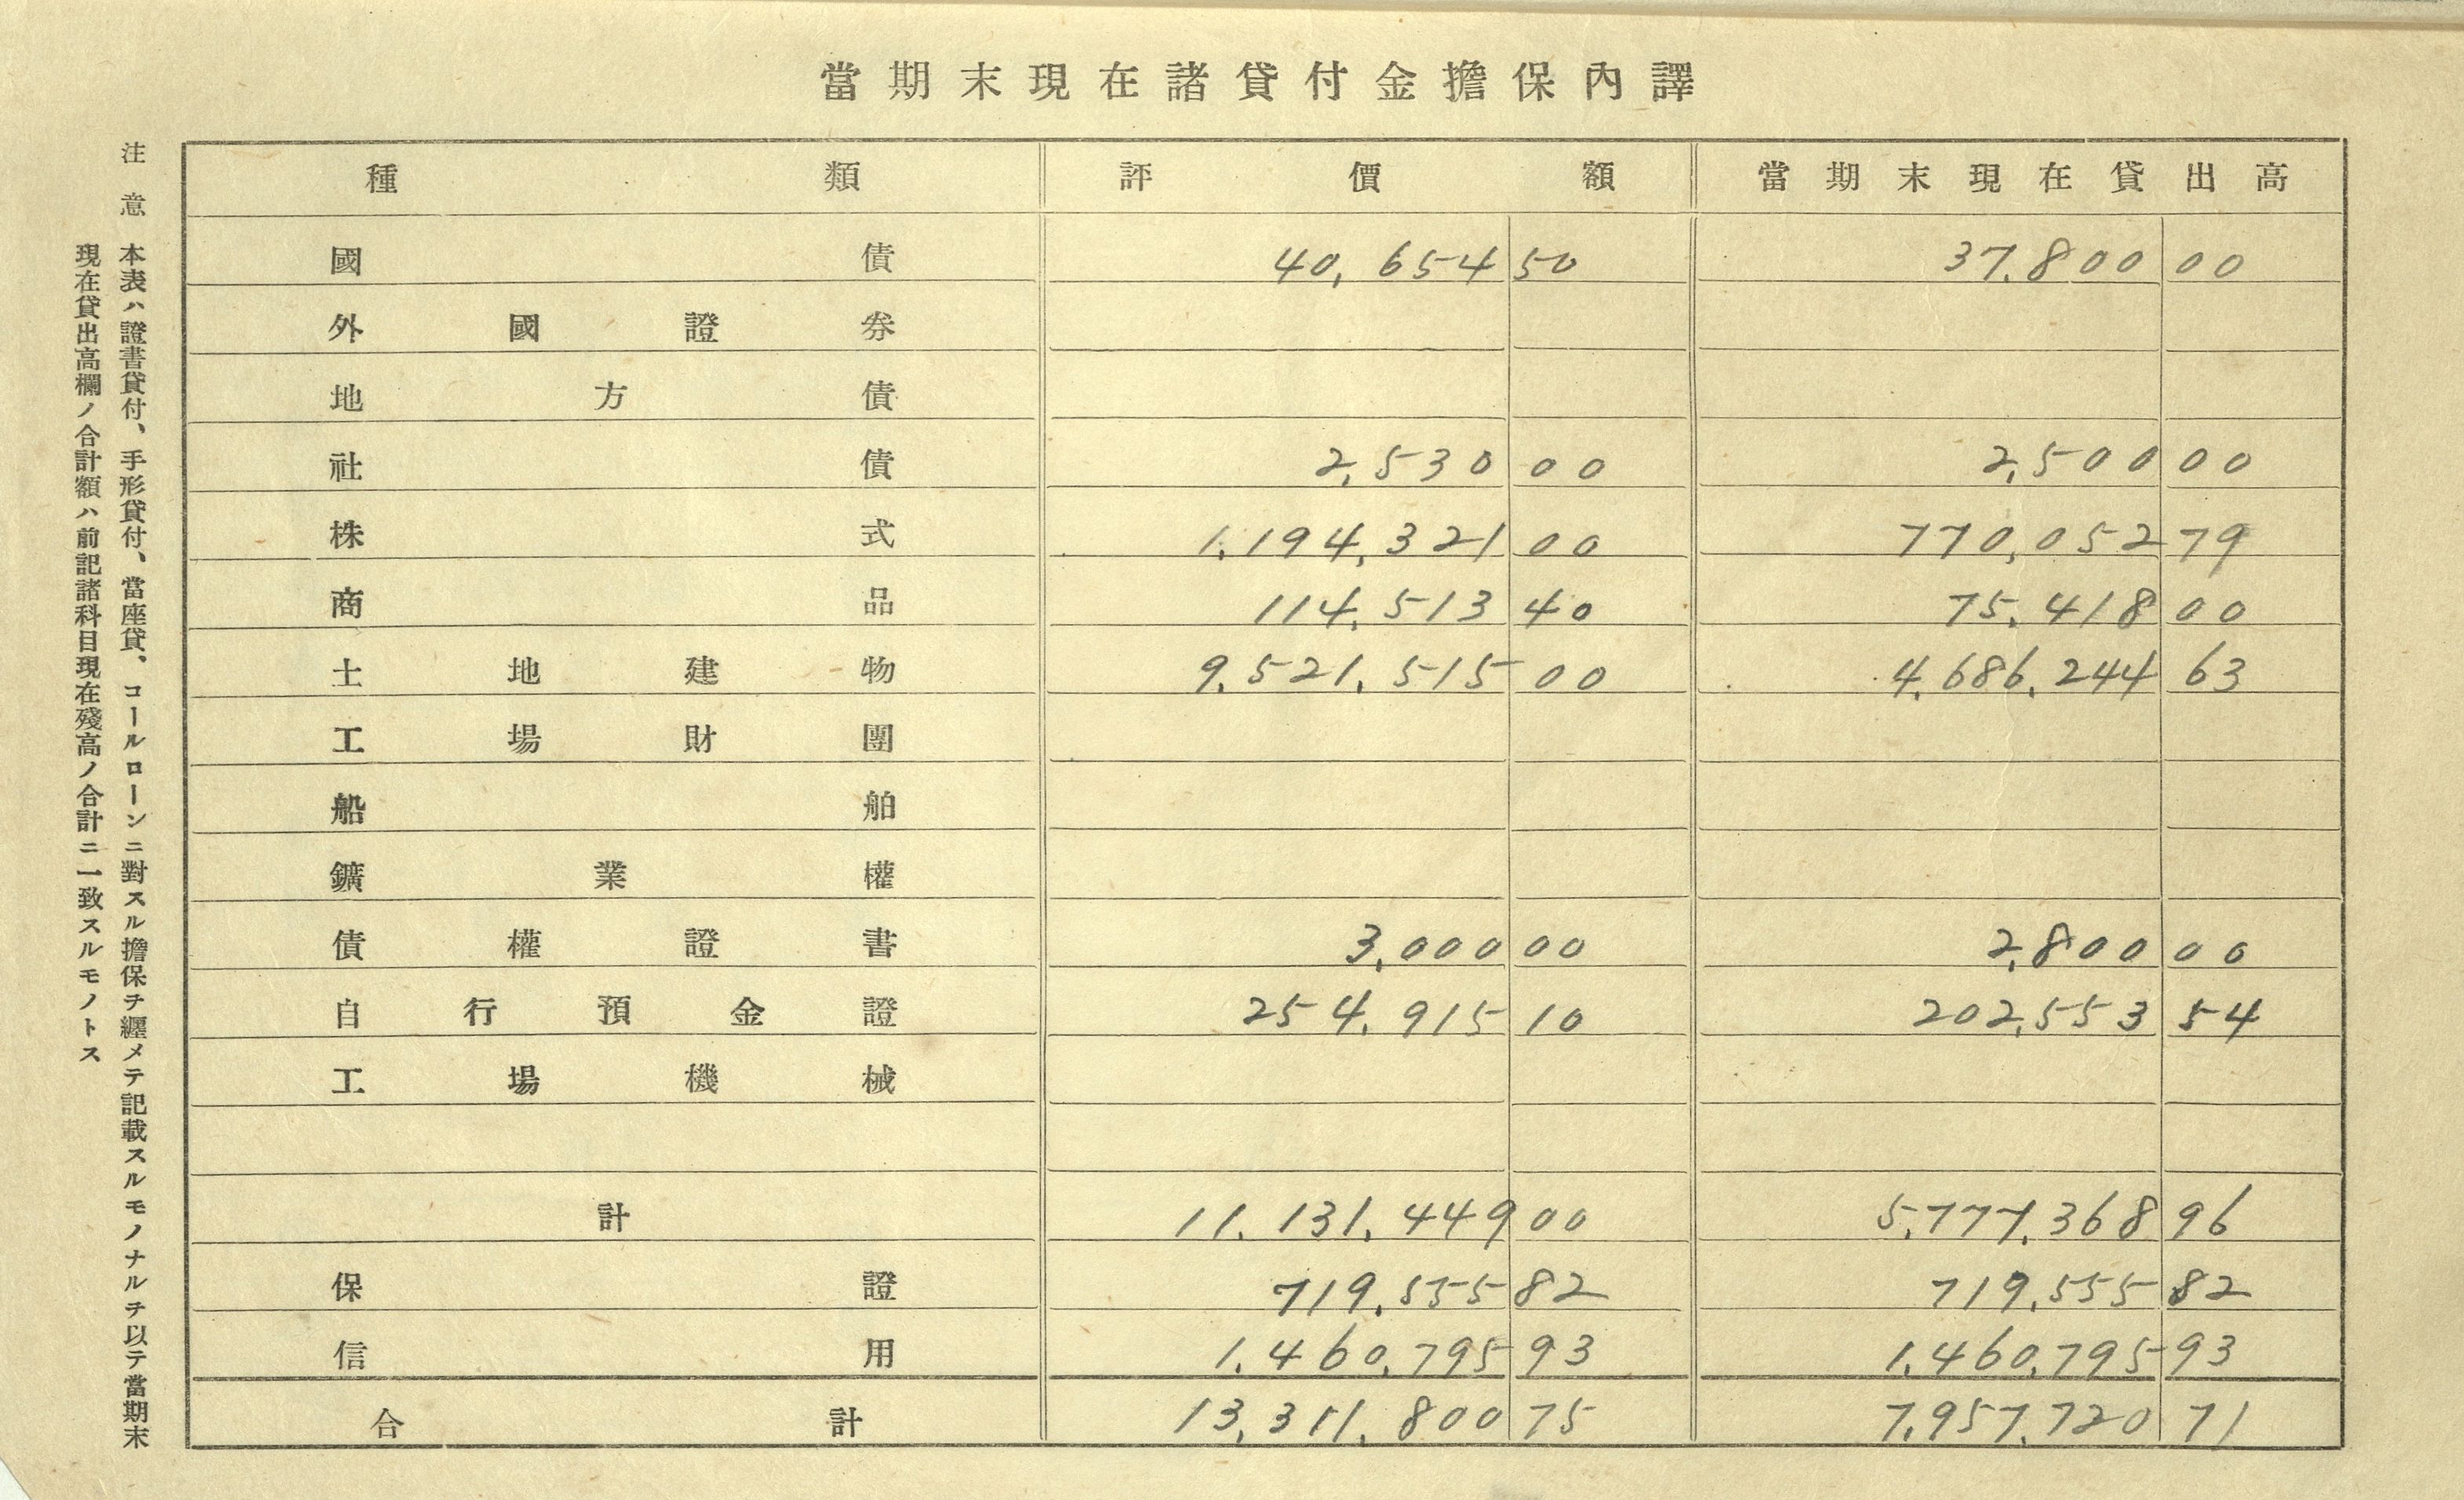 當期末現在諸貸付金擔保內譯
種類 評價額 當期末現在貸出高
國債 40,654 50 37,800 00
外國證券
地方債
社債 2,530 00 2,500 00
株式 1,194,321 00 770,052 79
商品 114,513 40 75,418 00
土地建物 9,521,515 00 4,686,244 63
工場財團
船舶
鑛業權
債權證書 3,000 00 2,800 00
自行預金證 254,915 10 202,553 54
工場機械
計 11,131,449 00 5,777,368 96
保證 719,555 82 719,555 82
信用 1,460,795 93 1,460,795 93
合計 13,311,800 75 7,957,720 71
注意 本表ハ證書貸付、手形貸付、當座貸、コールローンニ對スル擔保ヲ纒メテ記載スルモノナルヲ以テ當期末
現在貸出高欄ノ合計額ハ前記諸科目現在殘高ノ合計ニ一致スルモノトス